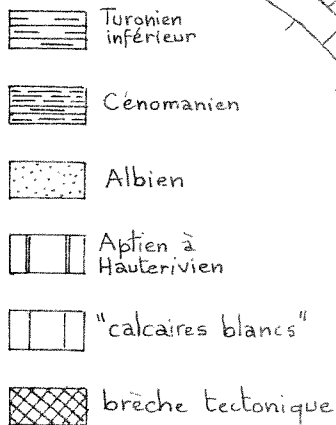 Turonien
inférieur
Cénomanien
Albien
Aptien à
Hauterivien
"calcaires blancs"
brèche tectonique